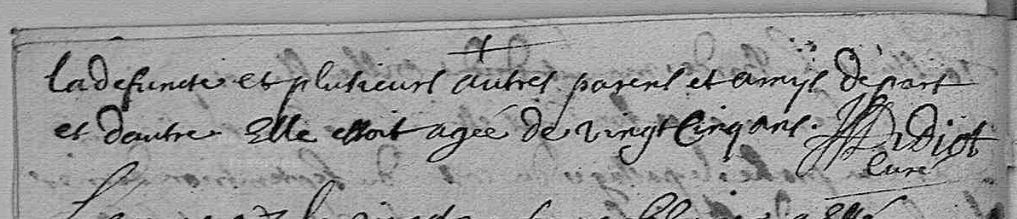 la defuncte et plusieurs autres parens et amys de part
et dautre. Elle estoit agée de vingt cinq ans.
Curé